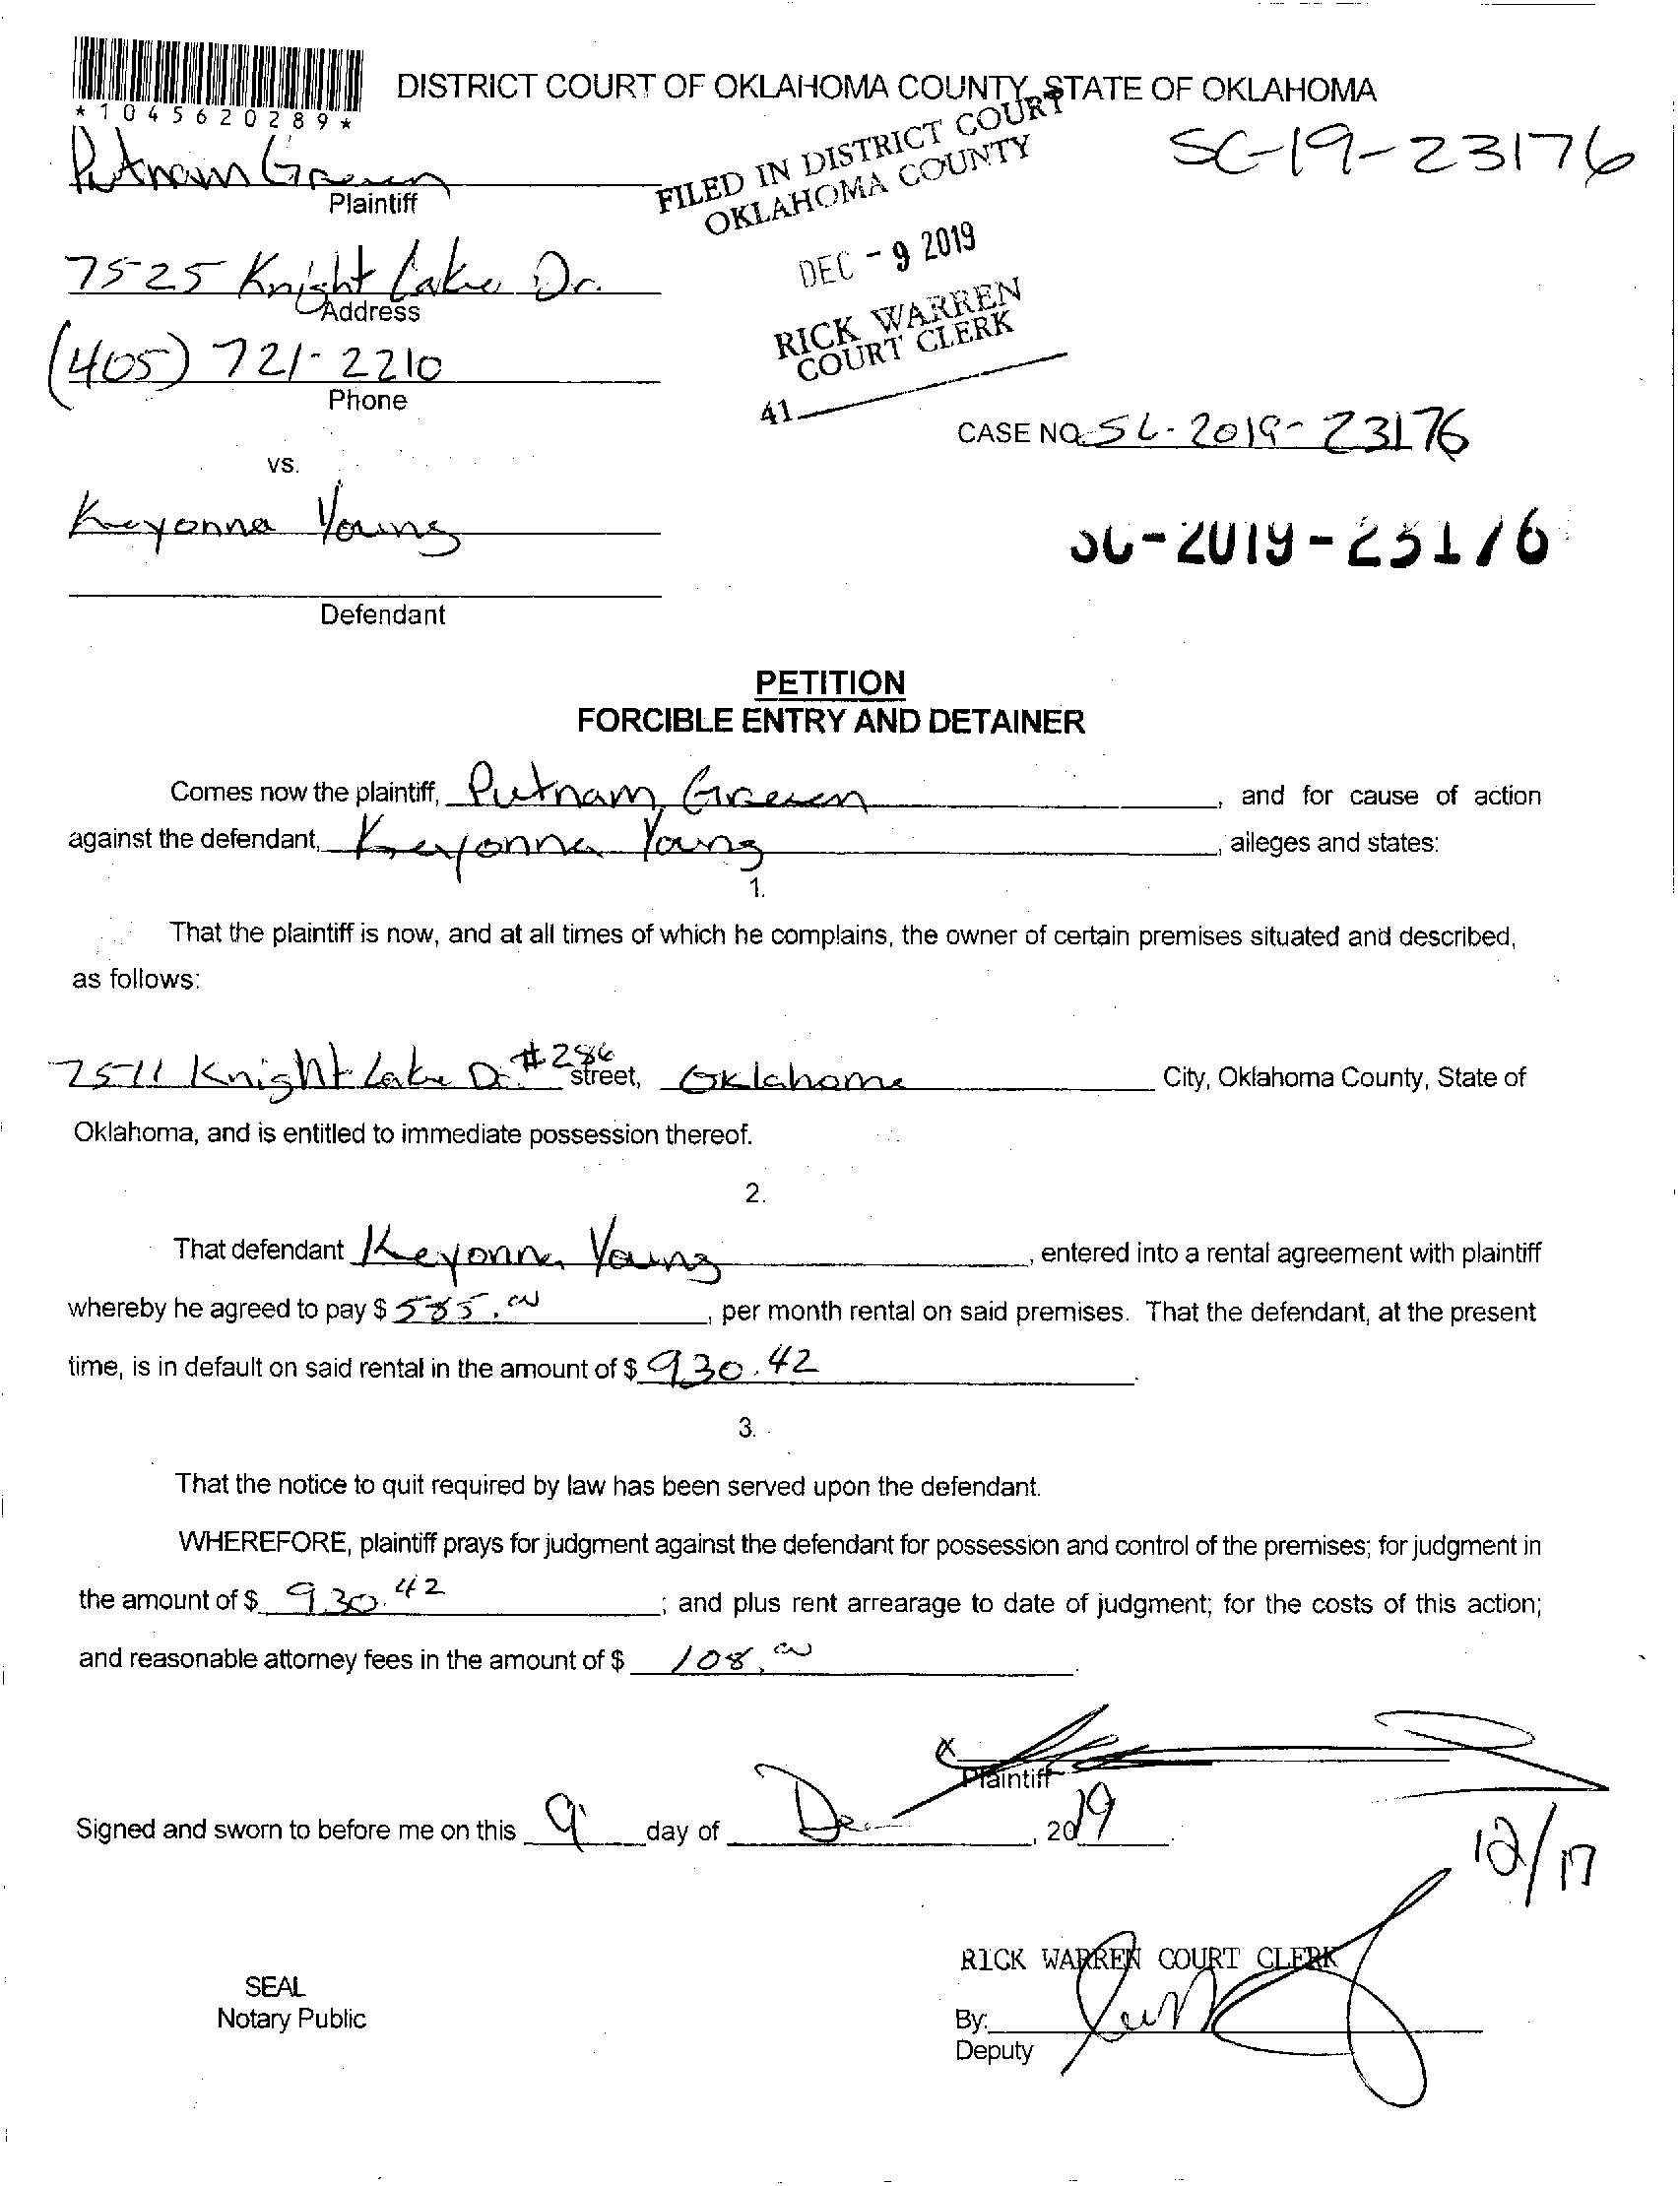 DISTRICT COURT OF OKLAHOMA COUNTY, STATE OF OKLAHOMA
*1045620289*
Putnam Green
Plaintiff
FILED IN DISTRICT COURT
OKLAHOMA COUNTY
SC-19-23176
7525 Knight Lake Dr.
Address
DEC - 9 2019
(405) 721-2210
Phone
RICK WARREN
COURT CLERK
41
CASE NO. SC-2019-23176
vs.
Keyonna Young
SC-2019-23176
Defendant
PETITION
FORCIBLE ENTRY AND DETAINER
Comes now the plaintiff, Putnam Green, and for cause of action
against the defendant, Keyonna Young, alleges and states:
1.
That the plaintiff is now, and at all times of which he complains, the owner of certain premises situated and described,
as follows:
7511 Knight Lake Dr. #286 street, Oklahoma City, Oklahoma County, State of
Oklahoma, and is entitled to immediate possession thereof.
2.
That defendant Keyonna Young, entered into a rental agreement with plaintiff
whereby he agreed to pay $ 585.00, per month rental on said premises. That the defendant, at the present
time, is in default on said rental in the amount of $ 930.42.
3.
That the notice to quit required by law has been served upon the defendant.
WHEREFORE, plaintiff prays for judgment against the defendant for possession and control of the premises; for judgment in
the amount of $ 930.42; and plus rent arrearage to date of judgment; for the costs of this action;
and reasonable attorney fees in the amount of $ 108.00.
X
Plaintiff
Signed and sworn to before me on this 9 day of Dec, 2019.
12/17
RICK WARREN COURT CLERK
SEAL
Notary Public
By:
Deputy